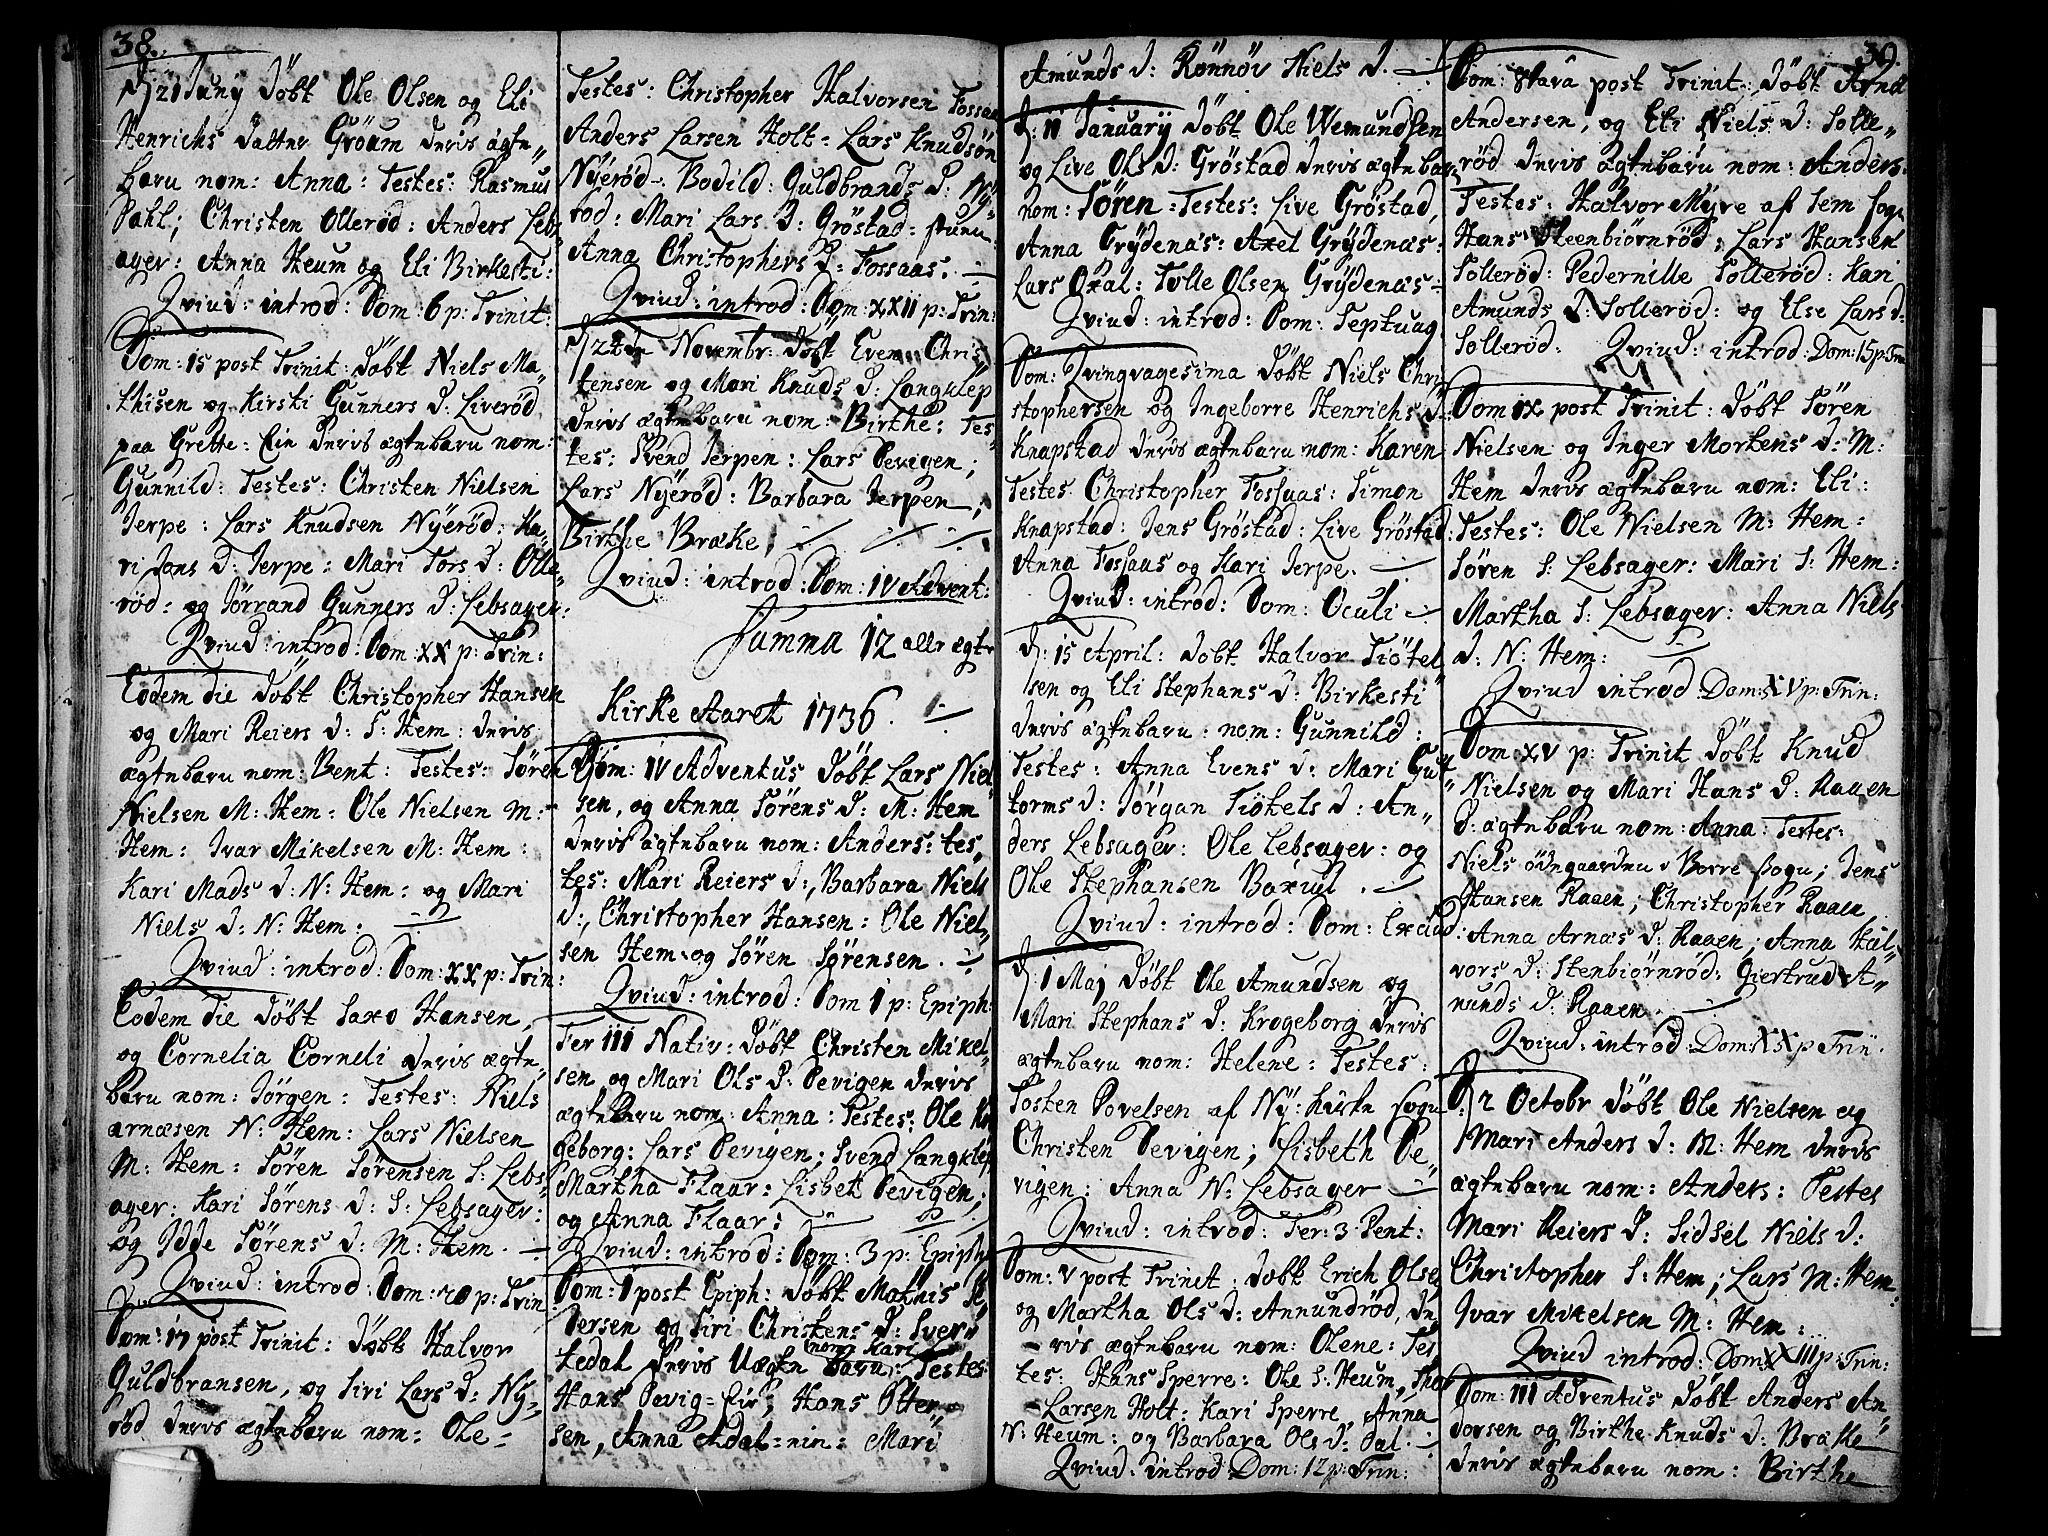 38.
D: 21 Juny Döbt Ole Olsen og Eli
Henrichs datter Gröum deris ægte„
barn nom: Anna: Testes: Rasmus
Dahl; Christen Ollerød: Anders Lebs
ager: Anna Heum og Eli Birkesti:
Qvind: introd: Dom: 6 p: Trinit:
Dom: 15 post Trinit: Döbt Niels Ma„
thisen og Kirsti Gunners D: Liverød
paa Grette: Eie deris ægtebarn nom:
Gunnild: Testes: Christen Nielsen
Jerpe: Lars Knudsen Nyerød: Ka„
ri Jons D: Jerpe: Mari Tors D: Olle„
rød: og Jörrand Gunners D: Lebsager:
Qvind: introd: Dom: XX p: Trin:
Eodem die Döbt Christopher Hansen
og Mari Reiers D: S: Hem: deris
ægtebarn nom: Bent: Testes: Sören
Nielsen M: Hem: Ole Nielsen M:
Hem: Ivar Mikelsen M: Hem:
Kari Mads D: N: Hem: og Mari
Niels D: N: Hem:
Qvind: introd: Dom: XX p: Trin:
Eodem die Döbt Saxo Hansen,
og Cornelia Corneli deris ægte„
barn nom: Jörgen: Testes: Niels
Arnæsen N: Hem: Lars Nielsen
M: Hem: Sören Sörensen S: Lebs„
ager: Kari Sörens D: S: Lebsager:
og Idde Sörens D: M: Hem.
Qvind: introd: Dom: 20 p: Trin:
Dom: 17 post Trinit: Döbt Halvor
Guldbransen, og Siri Lars D: Ny„
rød deris ægtebarn nom: Ole
Testes: Christopher Halvorsen Fossaas
Anders Larsen Holt: Lars Knudsön
Nyerød: Bodild: Guldbrands D: Ny„
rød: Mari Lars D: Gröstad:
Anna Christophers D: Fossaas.
Qvind: introd: Dom: XXII p: Trin:
D: 24de Novembr: Döbt Even Chris„
tensen og Mari Knuds D: Langklep
deris ægtebarn nom: Birthe: Tes„
tes: Svend Jerpen: Lars Pevigen;
Lars Nyerød: Barbara Jerpen;
Birthe Brække,
Qvind: introd: Dom: IV Advent:
Summa 12 alle ægte
Kirke Aaret 1736.
Dom: IV Adventus Döbt Lars Niel„
sen, og Anna Sörens D: M: Hem
deris ægtebarn nom: Anders: tes„
tes: Mari Reiers D:, Barbara Niels
D:, Christopher Hansen: Ole Niel„
sen Hem og Sören Sörensen.
Qvind: introd: Dom 1 p: Epiph:
Fer III Nativ: Döbt Christen Mikel„
sen og Mari Ols D: Pevigen deris
ægtebarn nom: Anna: Testes: Ole Kro
geborg: Lars Pevigen; Svend Langklep
Martha Flaar: Lisbet Pevigen;
og Anna Flaar:
Qvind: introd: Dom: 3 p: Epiph:
Dom: 1 post Epiph: Döbt Mathis Pe„
dersen og Siri Christens D: Sver„
tedal deris Uægte barn: nom: Kari Testes
Hans Pevig=Eie; Hans Otter„
sen, Anna Adal=nin= Mari
Amunds D: Rönnöv Niels D.
D: 11 January Döbt Ole Wemundsen
og Live Ols D: Gröstad deris ægtebarn
nom: Sören: Testes: Live Gröstad,
Anna Grydenæs: Axel Grydenæs:
Lars Oxal: Tolle Olsen Grydenæs
Qvind: introd: Dom: Septuag
Dom: Qvinqvagesima Döbt Niels Chri
stophersen og Ingeborre Henrichs D:
Knapstad deris ægtebarn nom: Karen
Testes Christopher Fossaas: Simon
Knapstad: Jens Gröstad: Live Gröstad:
Anna Fossaas og Kari Jerpe.
Qvind: introd: Dom: Oculi
D: 15 April: Döbt Halvor Tiötel
sen og Eli Stephans D: Birkesti
deris ægtebarn: nom: Gunnild:
Testes: Anna Evens D: Mari Gut„
torms D: Jörgan Tiökels D: An„
ders Lebsager: Ole Lebsager: og
Ole Stephansen Baxuul.
Qvind: introd: Dom: Exaud:
D: 1 Maj Döbt Ole Amundsen og
Mari Stephans D: Krogeborg deris
ægtebarn nom: Helene: Testes:
Tosten Povelsen af Ny: kirke sogn
Christen Pevigen; Lisbeth Pe„
vigen: Anna N: Lebsager
Qvind: introd: Fer: 3 Pent:
Dom: V post Trinit: Döbt Erich Olsen
og Martha Ols D: Annundrød, de„
ris ægtebarn nom: Olene: Tes
tes: Hans Sperre: Ole S: Heum,
Larsen Holt: Kari Sperre, Anna
N: Heum: og Barbara Ols D: Dal.
Qvind: introd: Dom: 12 p: Trin:
39.
Dom: 8tava post Trinit: Döbt Arne
Andersen, og Eli Niels D: Solle„
rød deris ægtebarn nom: Anders:
Testes: Halvor Myre af Sem sogn
Hans Steenbiörnrød: Lars Hansen
Sollerød: Pedernille Sollerød: Kari
Amunds D: Sollerød: og Else Lars D:
Sollerød: Qvind: introd: Dom: 15 p: Trin
Dom IX post Trinit: Döbt Sören
Nielsen og Inger Mortens D: M:
Hem deris ægtebarn nom: Eli:
Testes: Ole Nielsen M: Hem:
Sören S: Lebsager: Mari S: Hem:
Martha S: Lebsager: Anna Niels
D: N: Hem:
Qvind introd: Dom: XV p: Trin:
Dom: XV p: Trinit Döbt Knud
Nielsen og Mari Hans D: Raaen
D: ægtebarn nom: Anna: Testes:
Niels ödegaarden i Borre sogn; Jens
Hansen Raaen; Christopher Raaen,
Anna Arnæs D: Raaen; Anna Hal„
vors D: Stenbiörnrød: Giertrud A„
nunds D: Raaen.
Qvind: introd: Dom: XX p Trin.
D: 2 Octobr Döbt Ole Nielsen og
Mari Anders D: M: Hem deris
ægtebarn nom: Anders: Testes
Mari Reiers D: Sidsel Niels D:
Christopher S: Hem; Lars M: Hem:
Ivar Mikelsen M: Hem:
Qvind introd: Dom: XXIII p: Trin:
Dom: III Adventus Döbt Anders An„
dersen og Birthe Knuds D: Brække
deris ægtebarn nom: Birthe